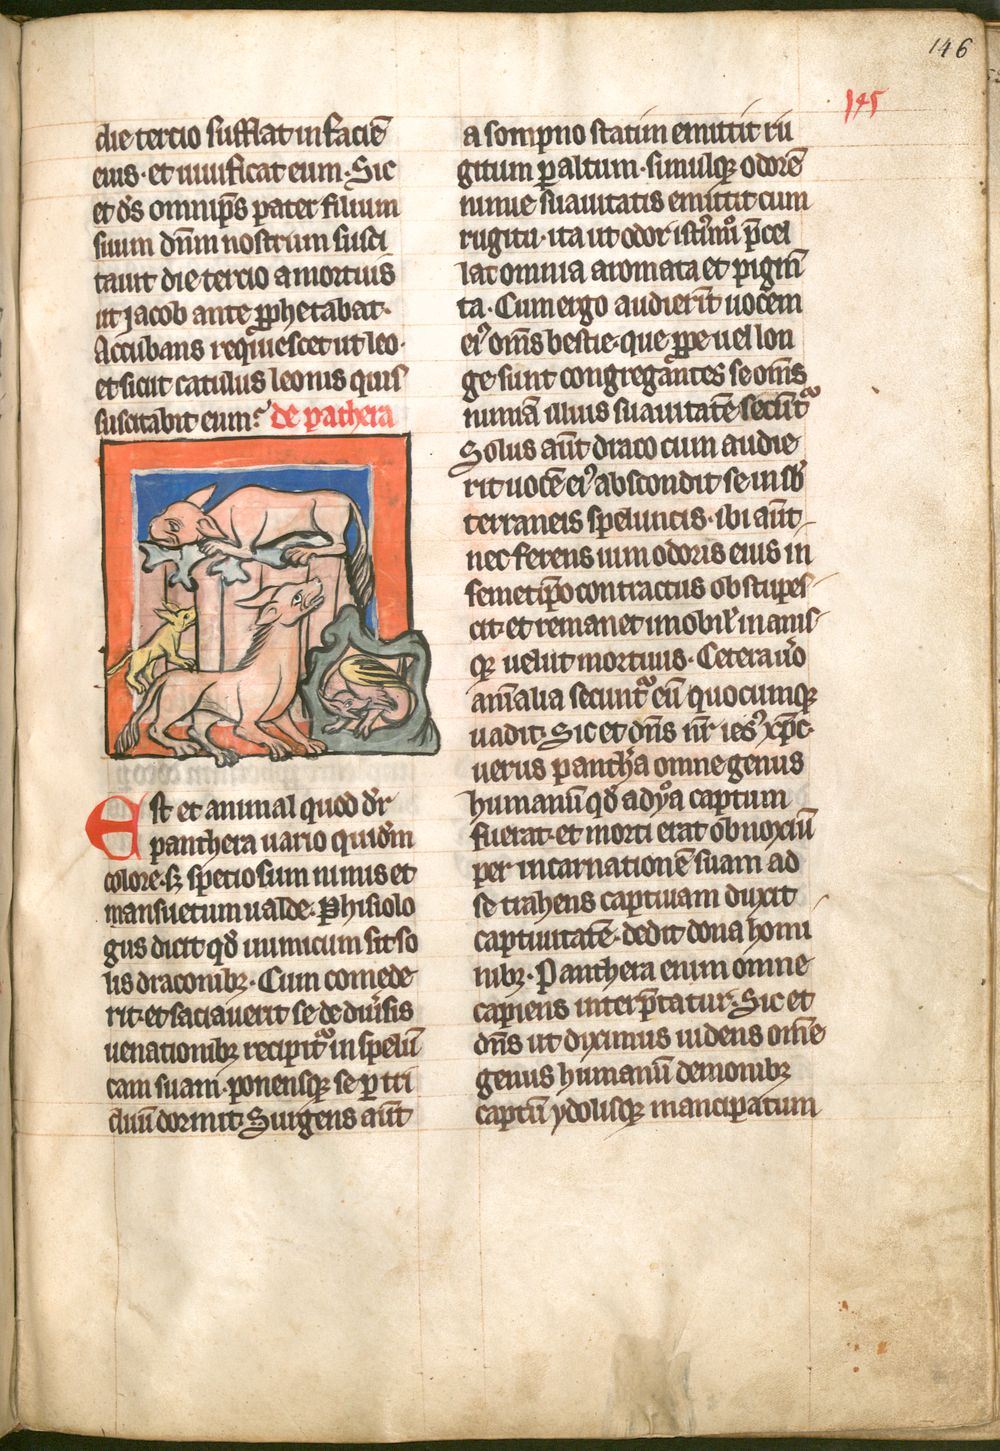 146
145
die tercio sufflat in faciē
eius · et uiuificat eum · Sic
et ds̄ omnip̄s pater filium
suum dn̄m nostrum susci
tauit die tercio a mortuis
ut Jacob ante ꝓphetabat ·
Accubans requiescet ut leo ·
et sicut catulus leonis quis
suscitabit eum? de pathera
Est et animal quod dr̄
panthera uario quidm̄
colore · sꝫ speciosum nimis et
mansuetum ualde · Phisiolo
gus dicit qđ inimicum sit so
lis draconibꝫ · Cum comede
rit · et saciauerit se de diuˀsis
uenationibꝫ recipitᷣ in spelū
cam suam · ponensqꝫ se ꝑ tri
duū dormit · Surgens aūt
a sompno statim emittit ru
gitum ꝑ altum · simulqꝫ odorē
nimie suauitatis emittit cum
rugitu · ita ut odor istiꝰ mͦ p̄cel
lat omnia aromata et pigm̄
ta · Cum ergo audierīt uocem
eiꝰ om̄s bestie · que ꝓpe uel lon
ge sunt congregantes se om̄s
nimiā illius suauitatē secūtᷣ
Solus aūt draco cum audie
rit uocē eiꝰ abscondit se in sb̄
terraneis speluncis · ibi aūt
nec ferens uim odoris eius in
semetip̄o contractus obstupes
cit · et remanet inmobil' inanis
qꝫ uelut mortuus · Cetera uͦo
animalia secuntᷣ eū quocumqꝫ
uadit · Sic et dn̄s nr̄ iesꝰ xp̄c ·
uerus panthˀa omne genus
humanū qđ a dyᵃo captum
fuerat · et morti erat obnoxiū
per incarnationē suam ad
se trahens captiuam duxit
captiuitatē · dedit dona homi
nibꝫ · Panthera enim omne
capiens interp̄tatur · Sic et
dn̄s ut diximus uidens om̄e
genus humanū demonibꝫ
captū ydolisqꝫ mancipatum